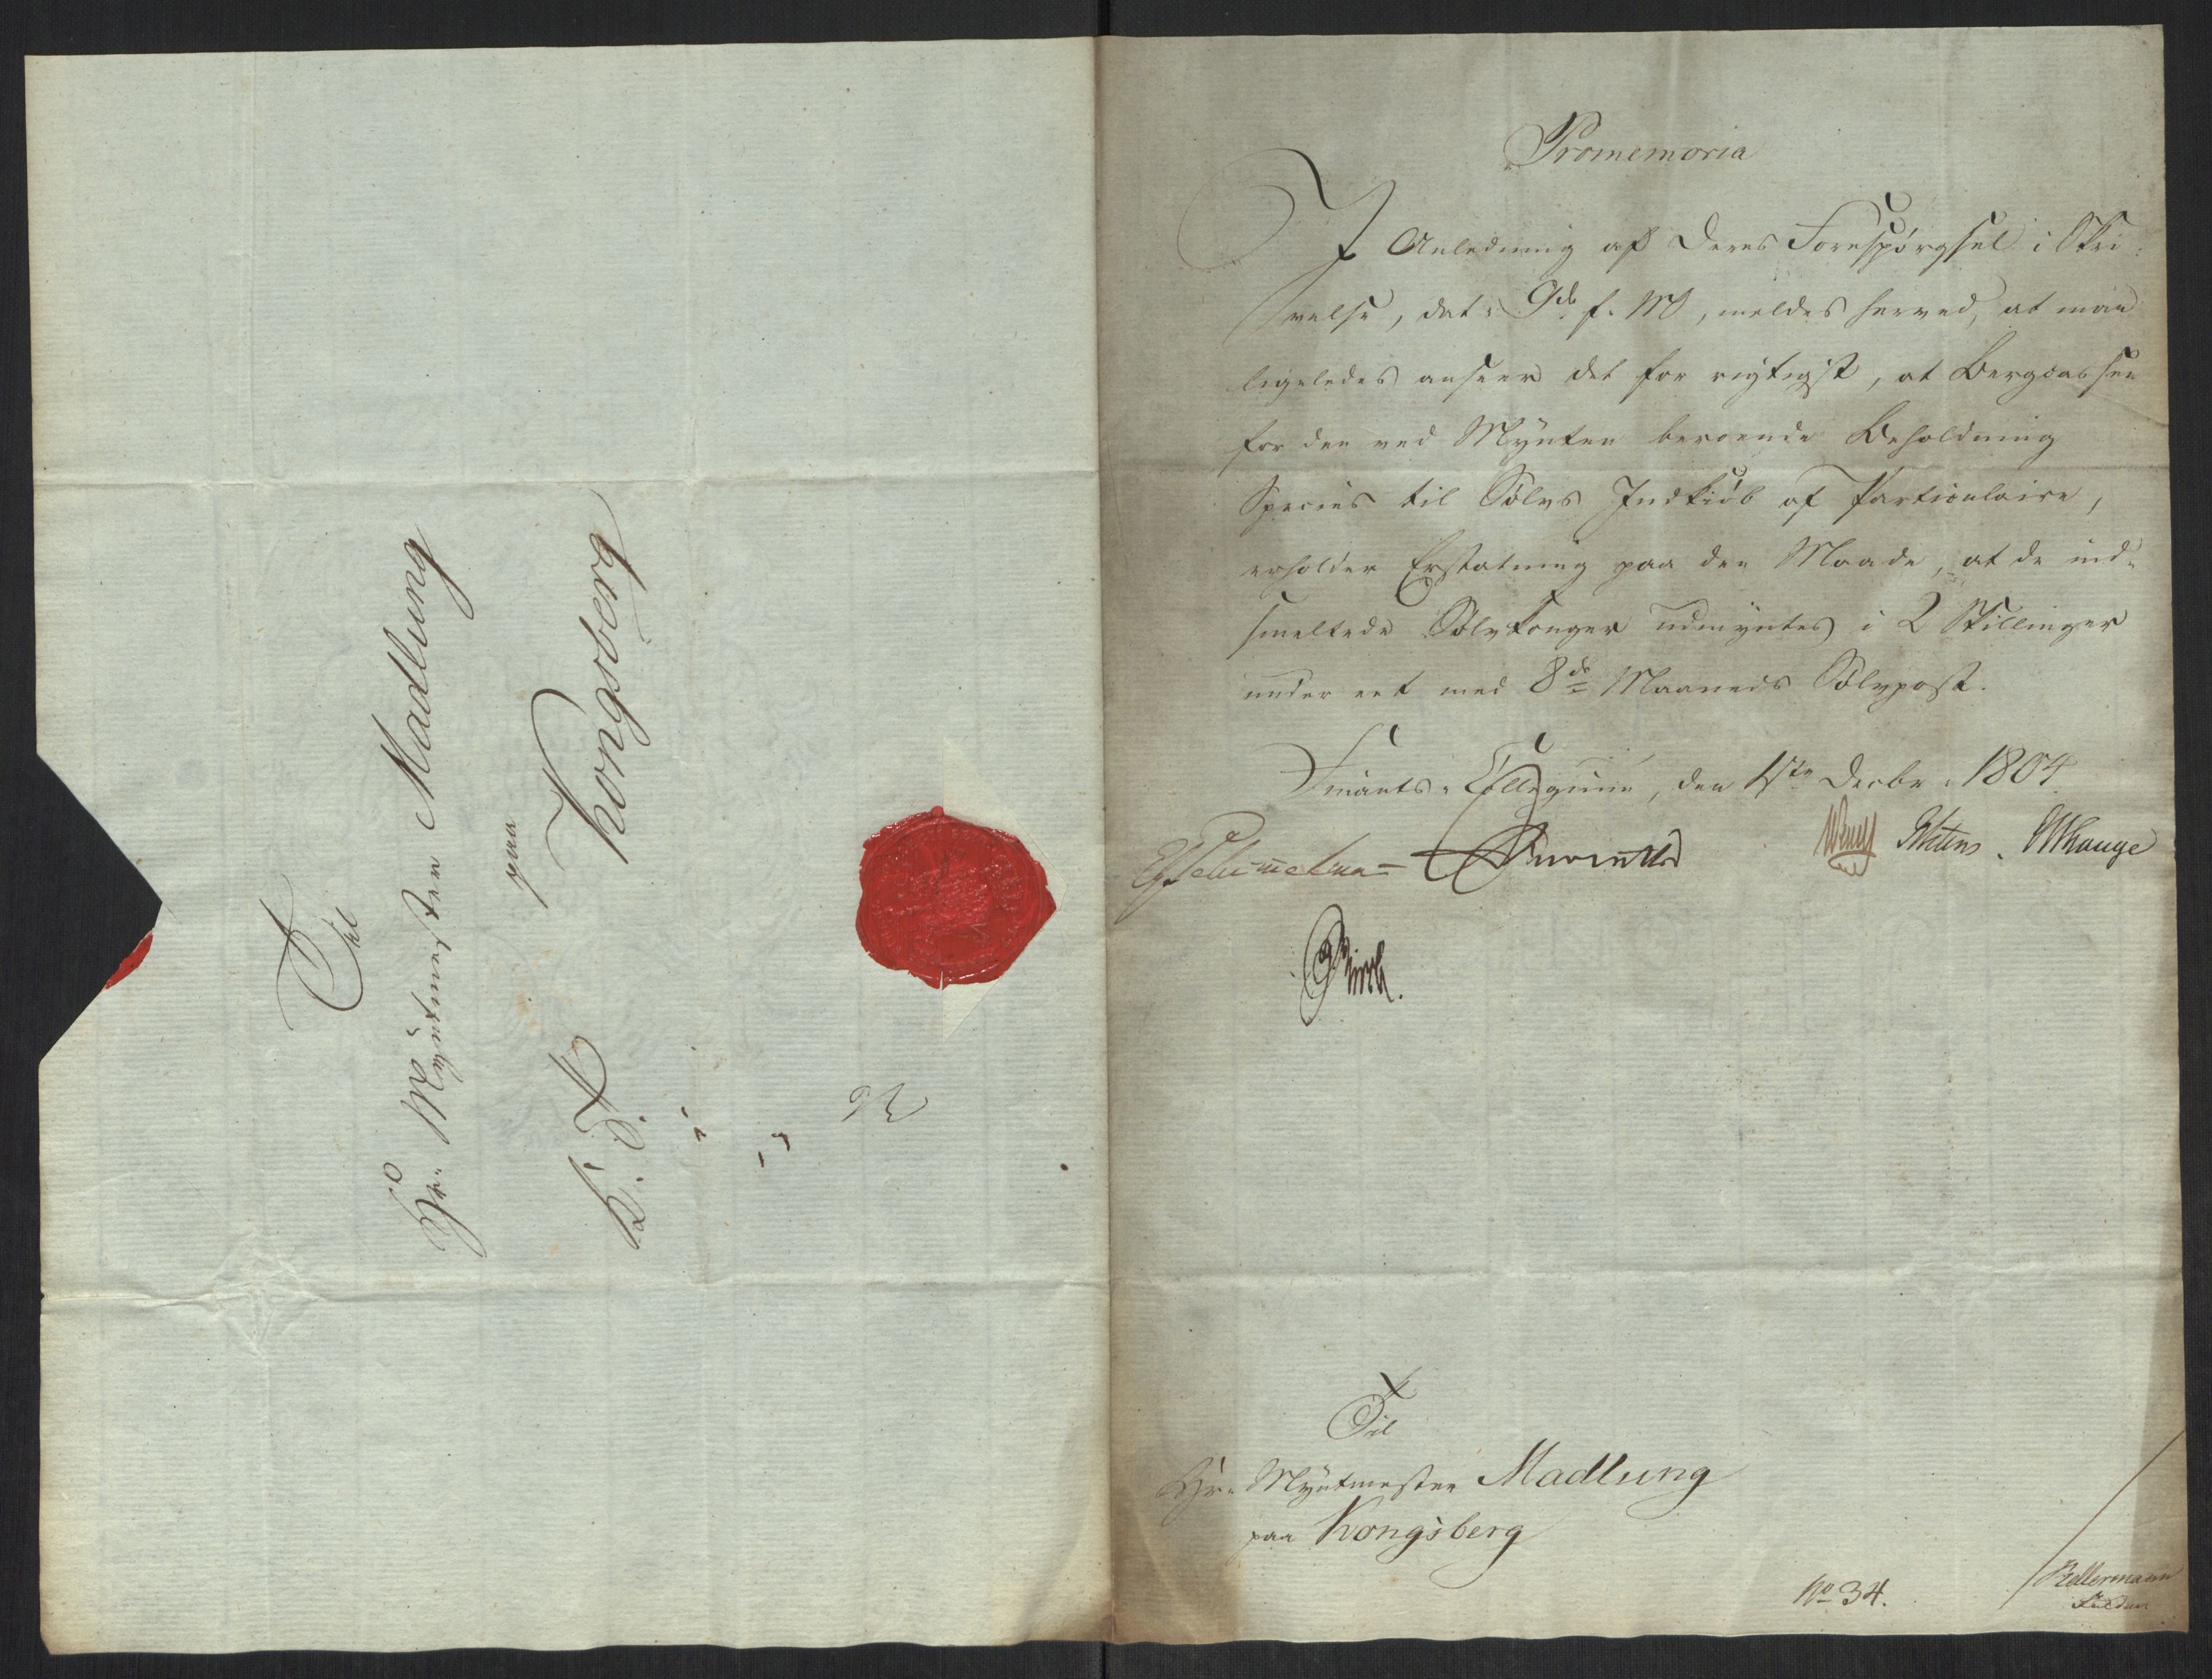 Til
Hr. Myntmester Madlung
paa
Kongsberg
K. T.
Promemoria
I Anledning af Deres Forespørgsel i Skri-
velse, dat: 9de f. M, meldes herved, at man
ligeledes anseer det for rigtigst, at Bergcassen
for den ved Mynten beroende Beholdning
Species til Sølvs Indkiøb af Particulaire,
erholder Erstatning paa den Maade, at de ind-
smeltede Sølvkonger udmyntes i 2 Skillinger
under eet med 8de Maaneds Sølvpost.
Finants-Collegium, den 1ste Decbr. 1804.
Til
Hr. Myntmester Madlung
paa Kongsberg
No 34.
Kellermann